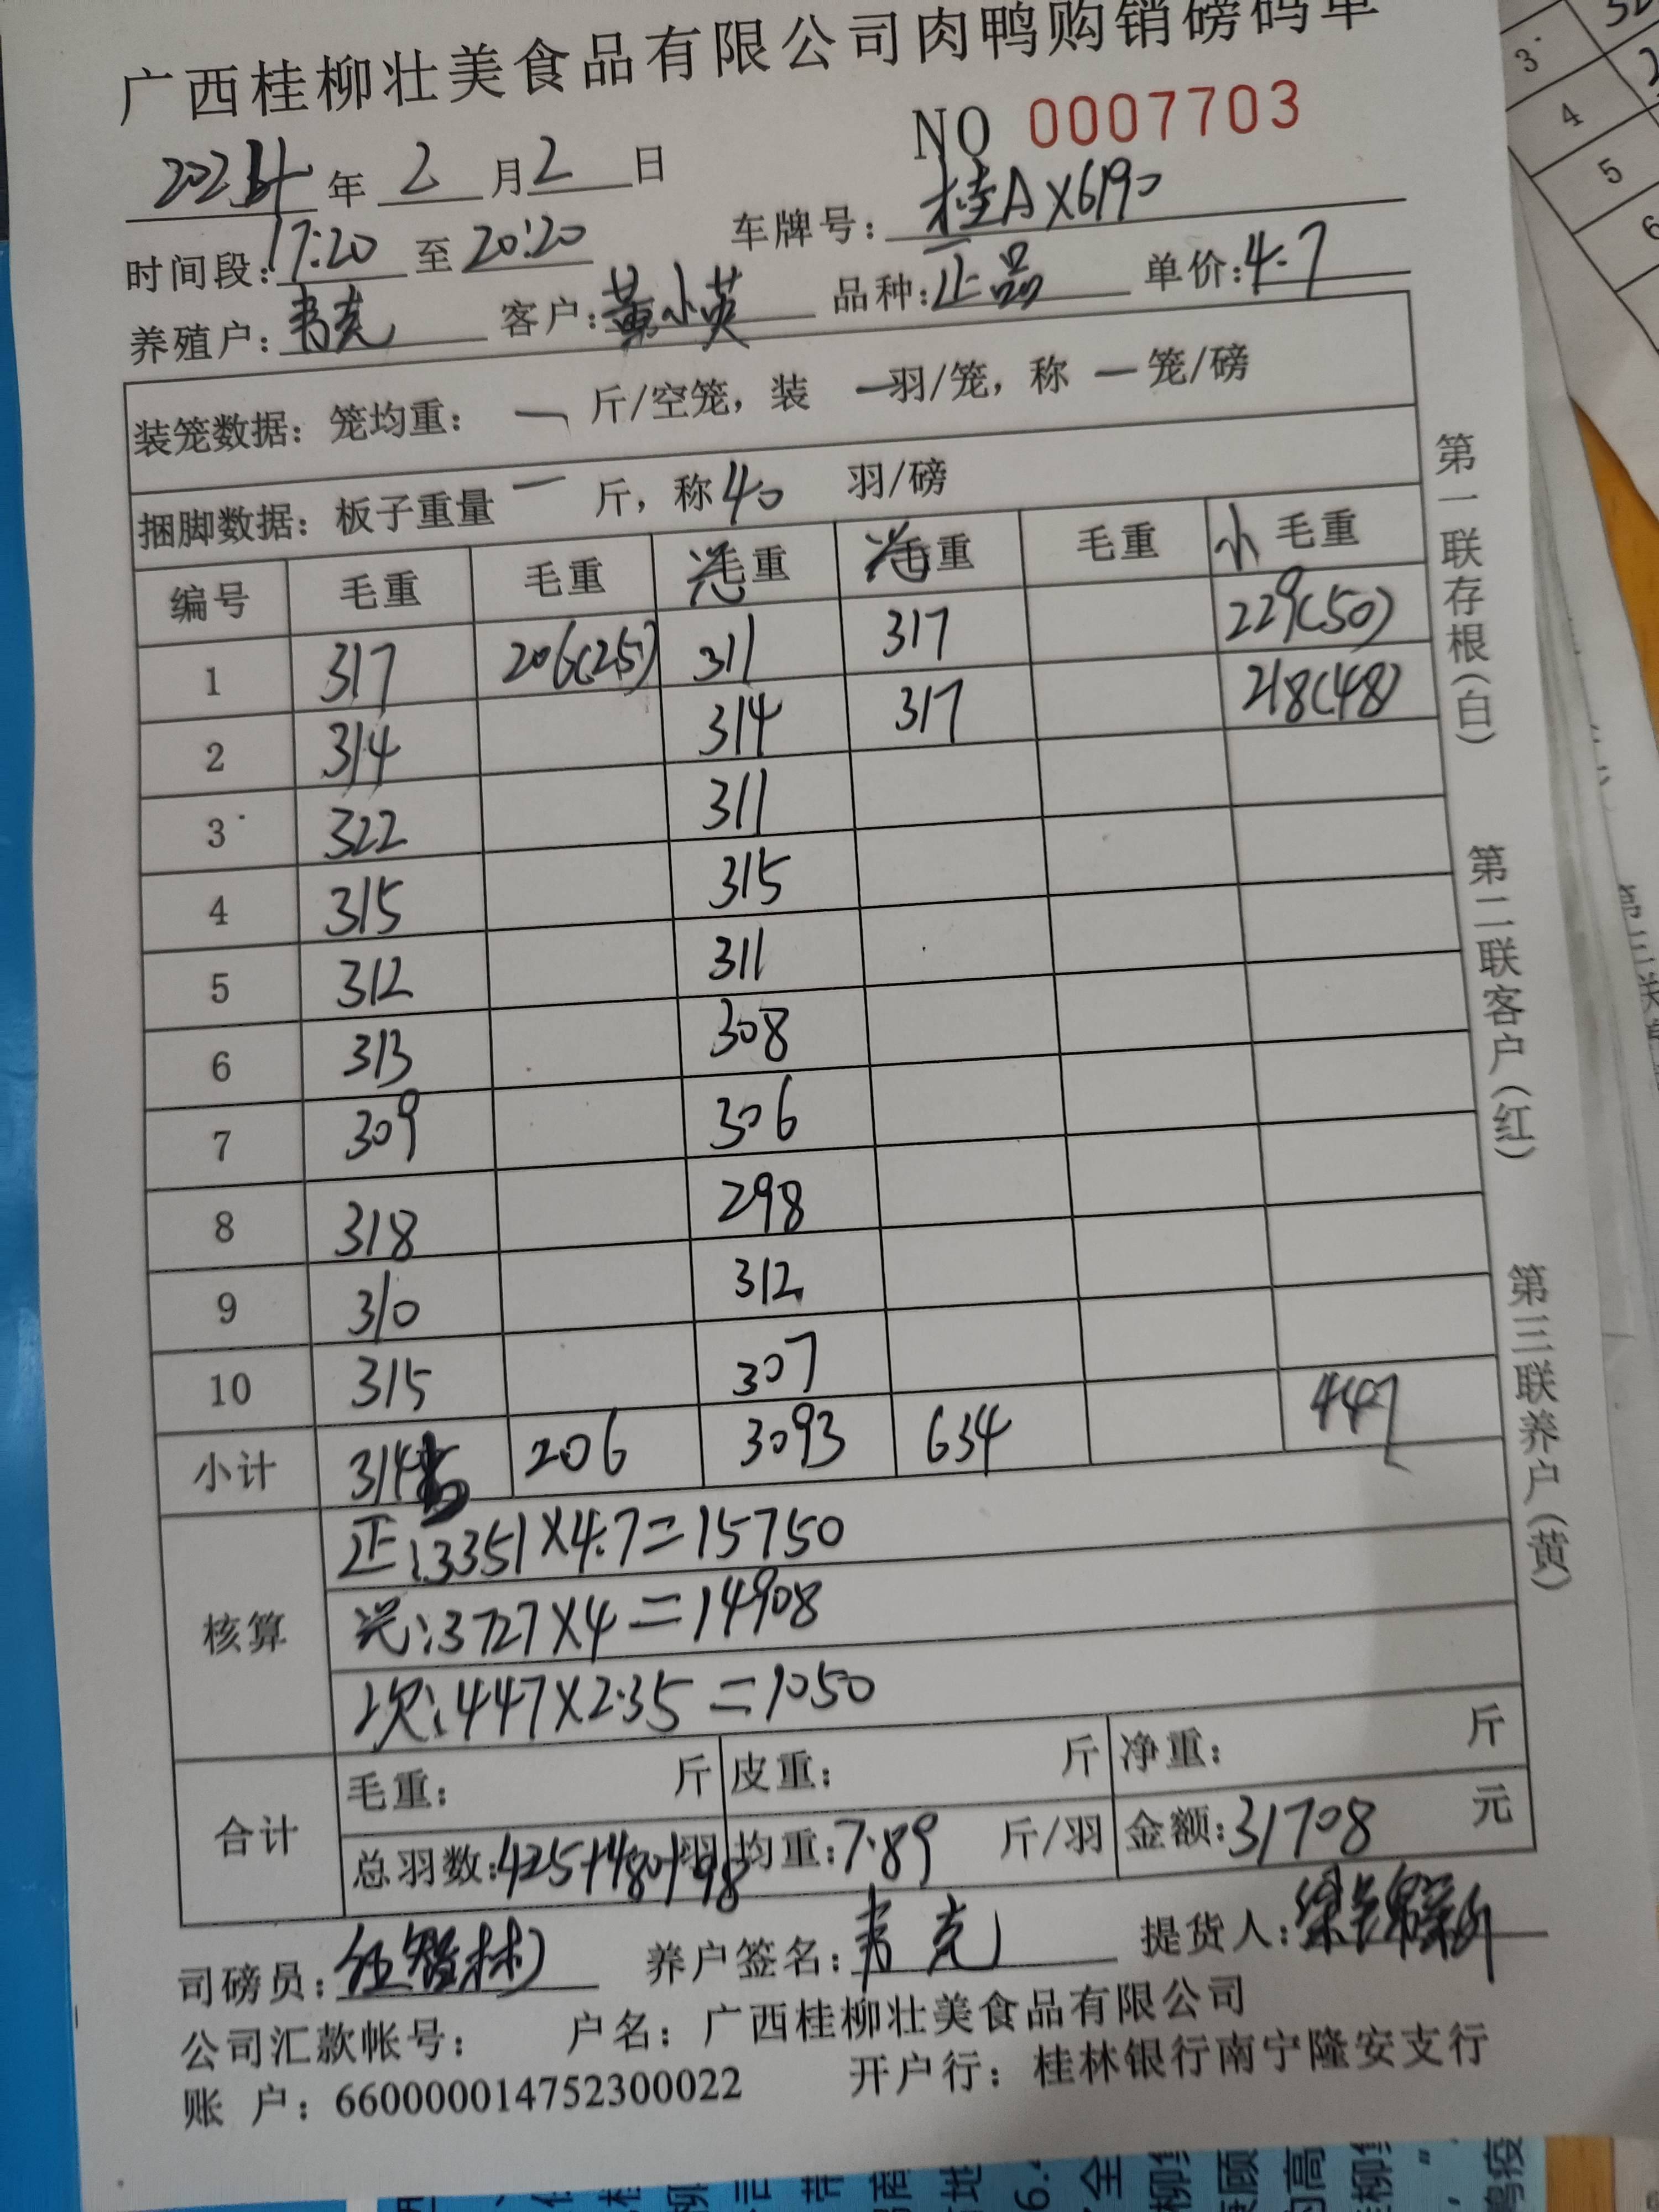 广西桂柳壮美食品有限公司肉鸭购销磅码单
NO 0007703
2024年2月2日
时间段:17:20至20:20 车牌号:桂AX6190
养殖户:韦克 客户:黄小英 品种:正品 单价:4.7
装笼数据:笼均重:一斤/空笼,装一羽/笼,称一笼/磅
捆脚数据:板子重量一斤,称40羽/磅
编号 毛重 毛重 毛重 毛重 毛重 小毛重
1 317 206(25) 311 317 229(50)
2 314 314 317 218(48)
3 322 311
4 315 315
5 312 311
6 313 308
7 309 306
8 318 298
9 310 312
10 315 307
小计 3145 206 3093 634 447
核算
正:3351×4.7=15750
:3727×4=14908
次:447×2.35=1050
合计
毛重: 斤 皮重: 斤 净重: 斤
总羽数:425+480+98羽 均重:7.89 斤/羽 金额:31708 元
司磅员: 养户签名:韦克 提货人:
公司汇款帐号: 户名:广西桂柳壮美食品有限公司
账 户:660000014752300022 开户行:桂林银行南宁隆安支行
第一联存根(白) 第二联客户(红) 第三联养户(黄)